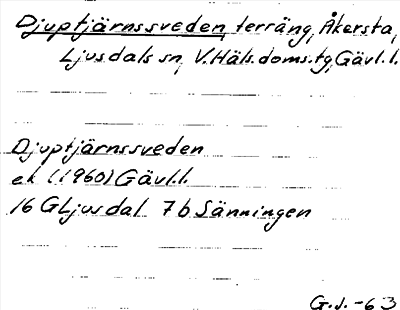 Djuptjärnssveden, terräng, Åkersta,
Ljusdals sn, V.Häls.doms.tg, Gävl.l.
Djuptjärnssveden
ek (1960) Gävl.l.
16 G Ljusdal 7b Sänningen
G.J.-63